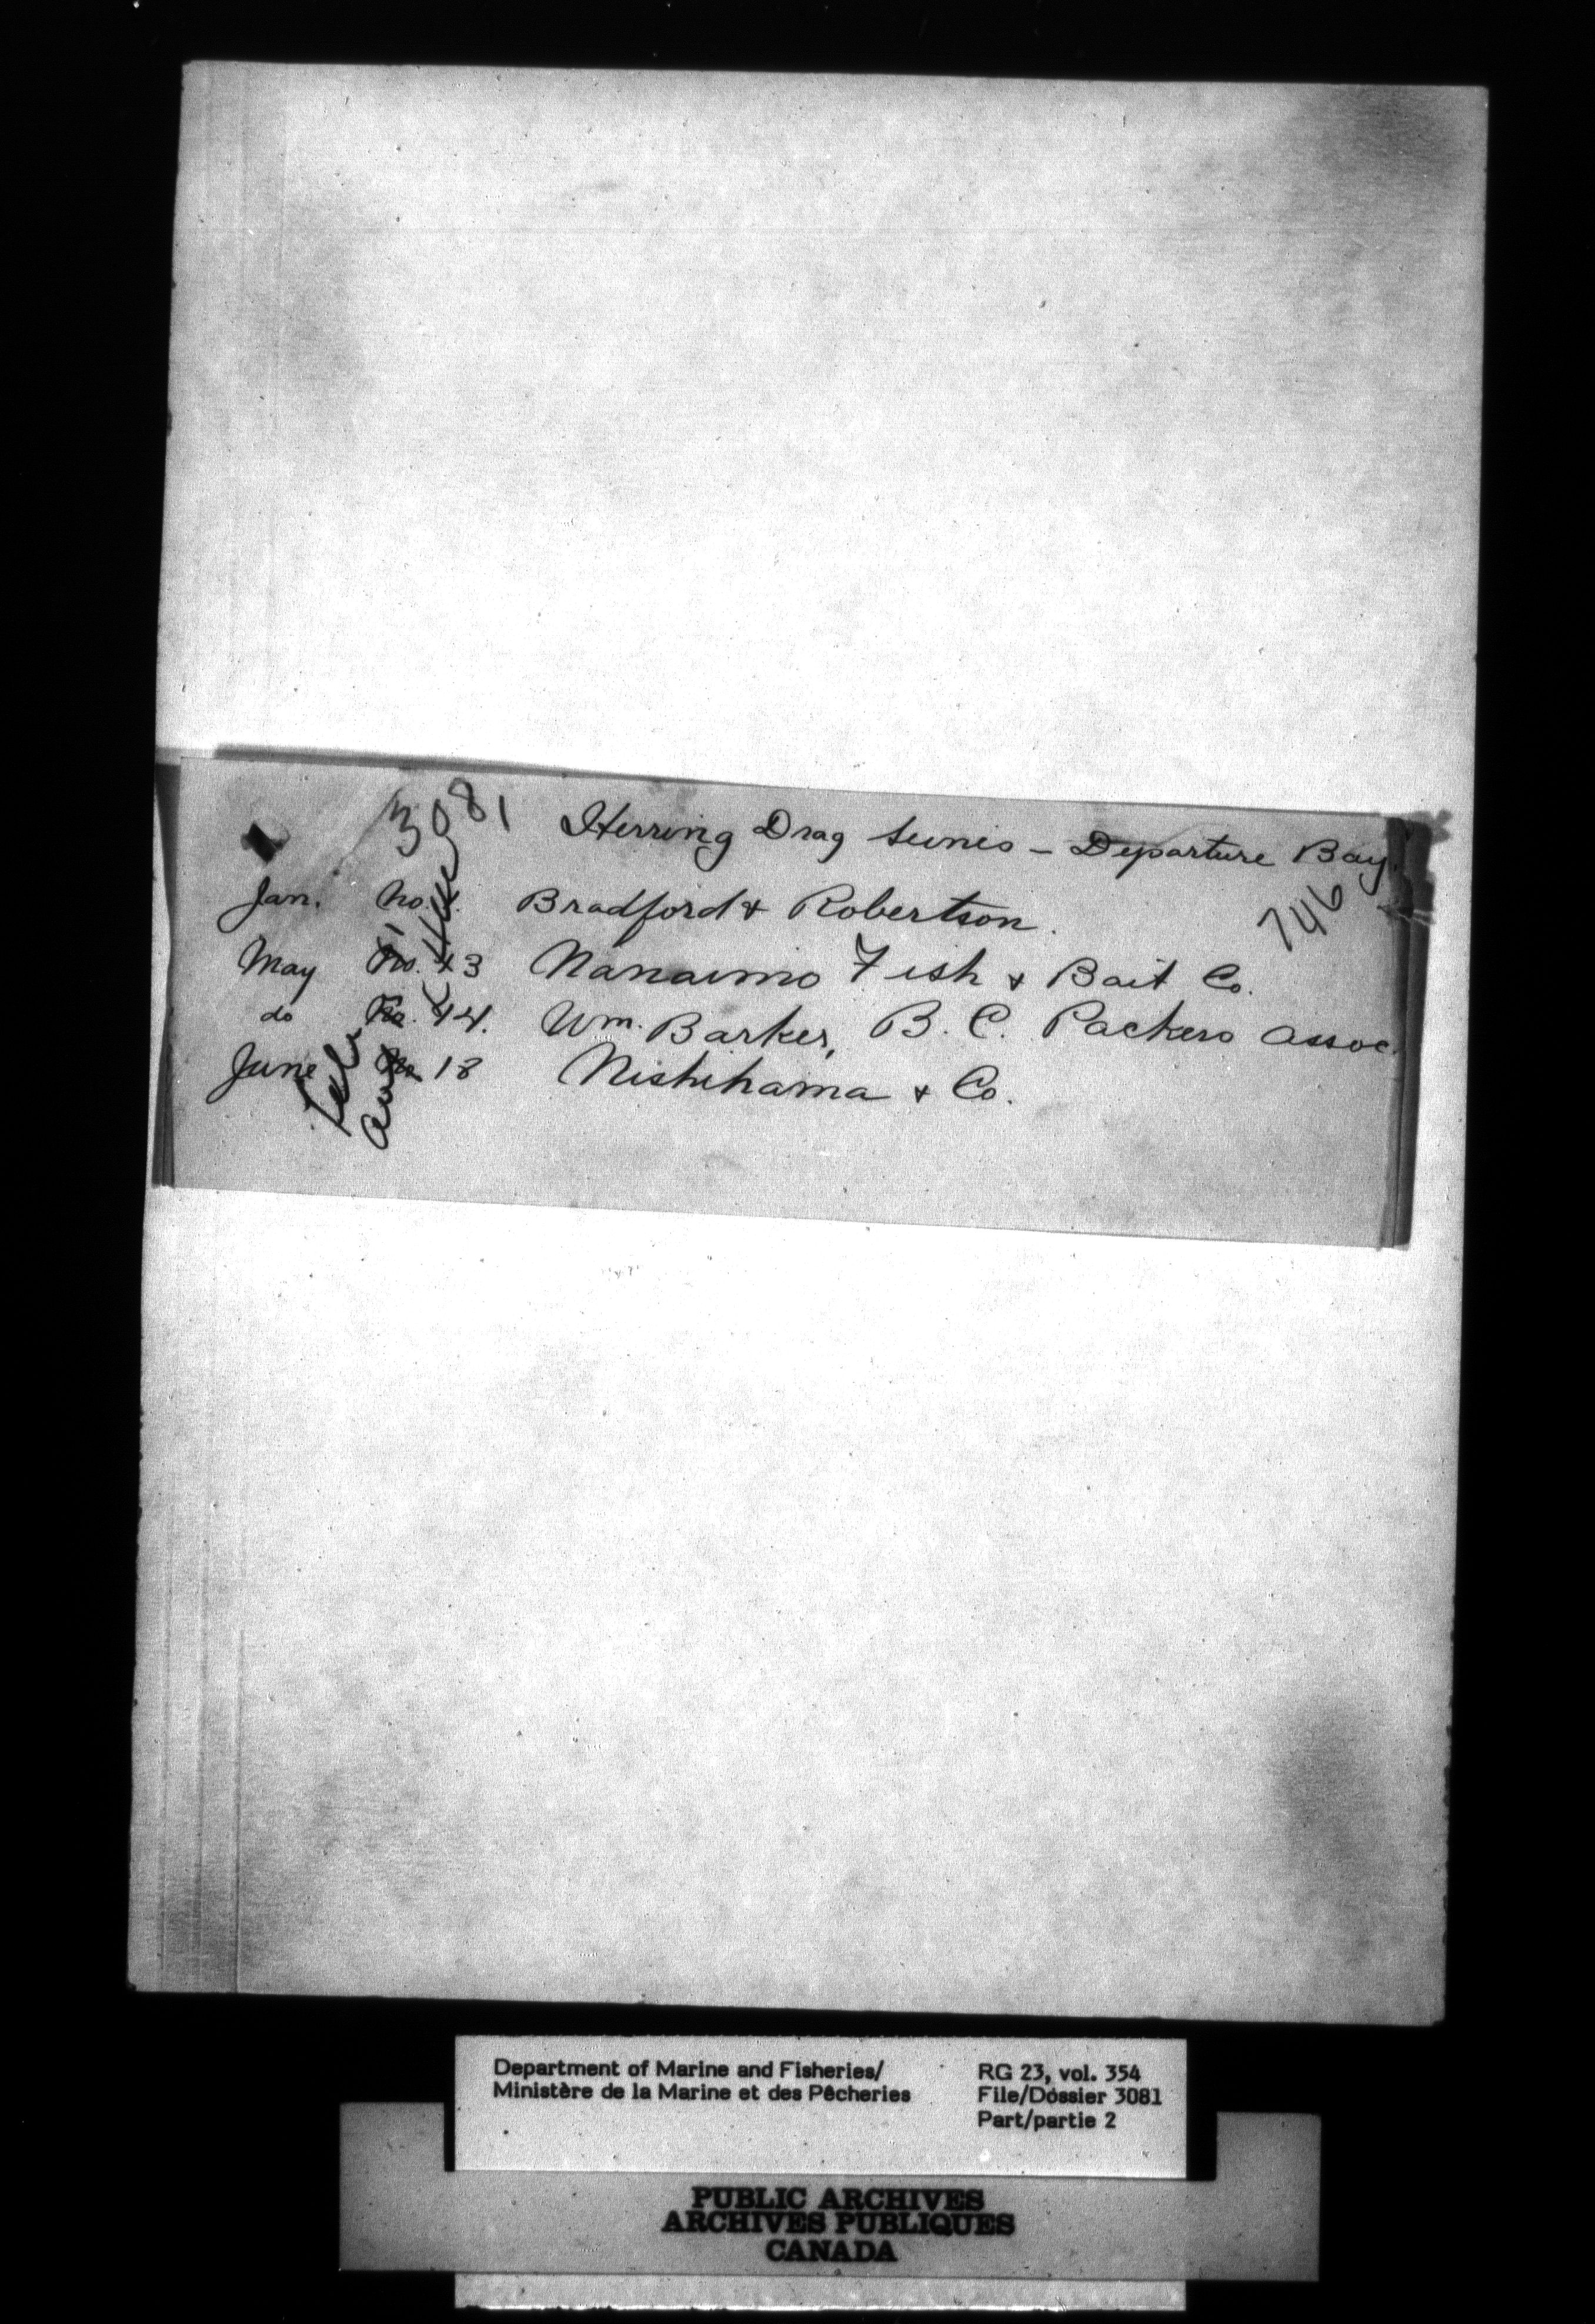 3081
Herring Drag Seines - Departure Bay.
746
Jan. No. Bradford & Robertson.
May No. 43 Nanaimo Fish & Bait Co.
do No. 44. Wm. Barker, B. C. Packers Assoc.
June No 18 Nishihama & Co.
Department of Marine and Fisheries/
Ministère de la Marine et des Pêcheries
RG 23, vol. 354
File/Dossier 3081
Part/partie 2
PUBLIC ARCHIVES
ARCHIVES PUBLIQUES
CANADA